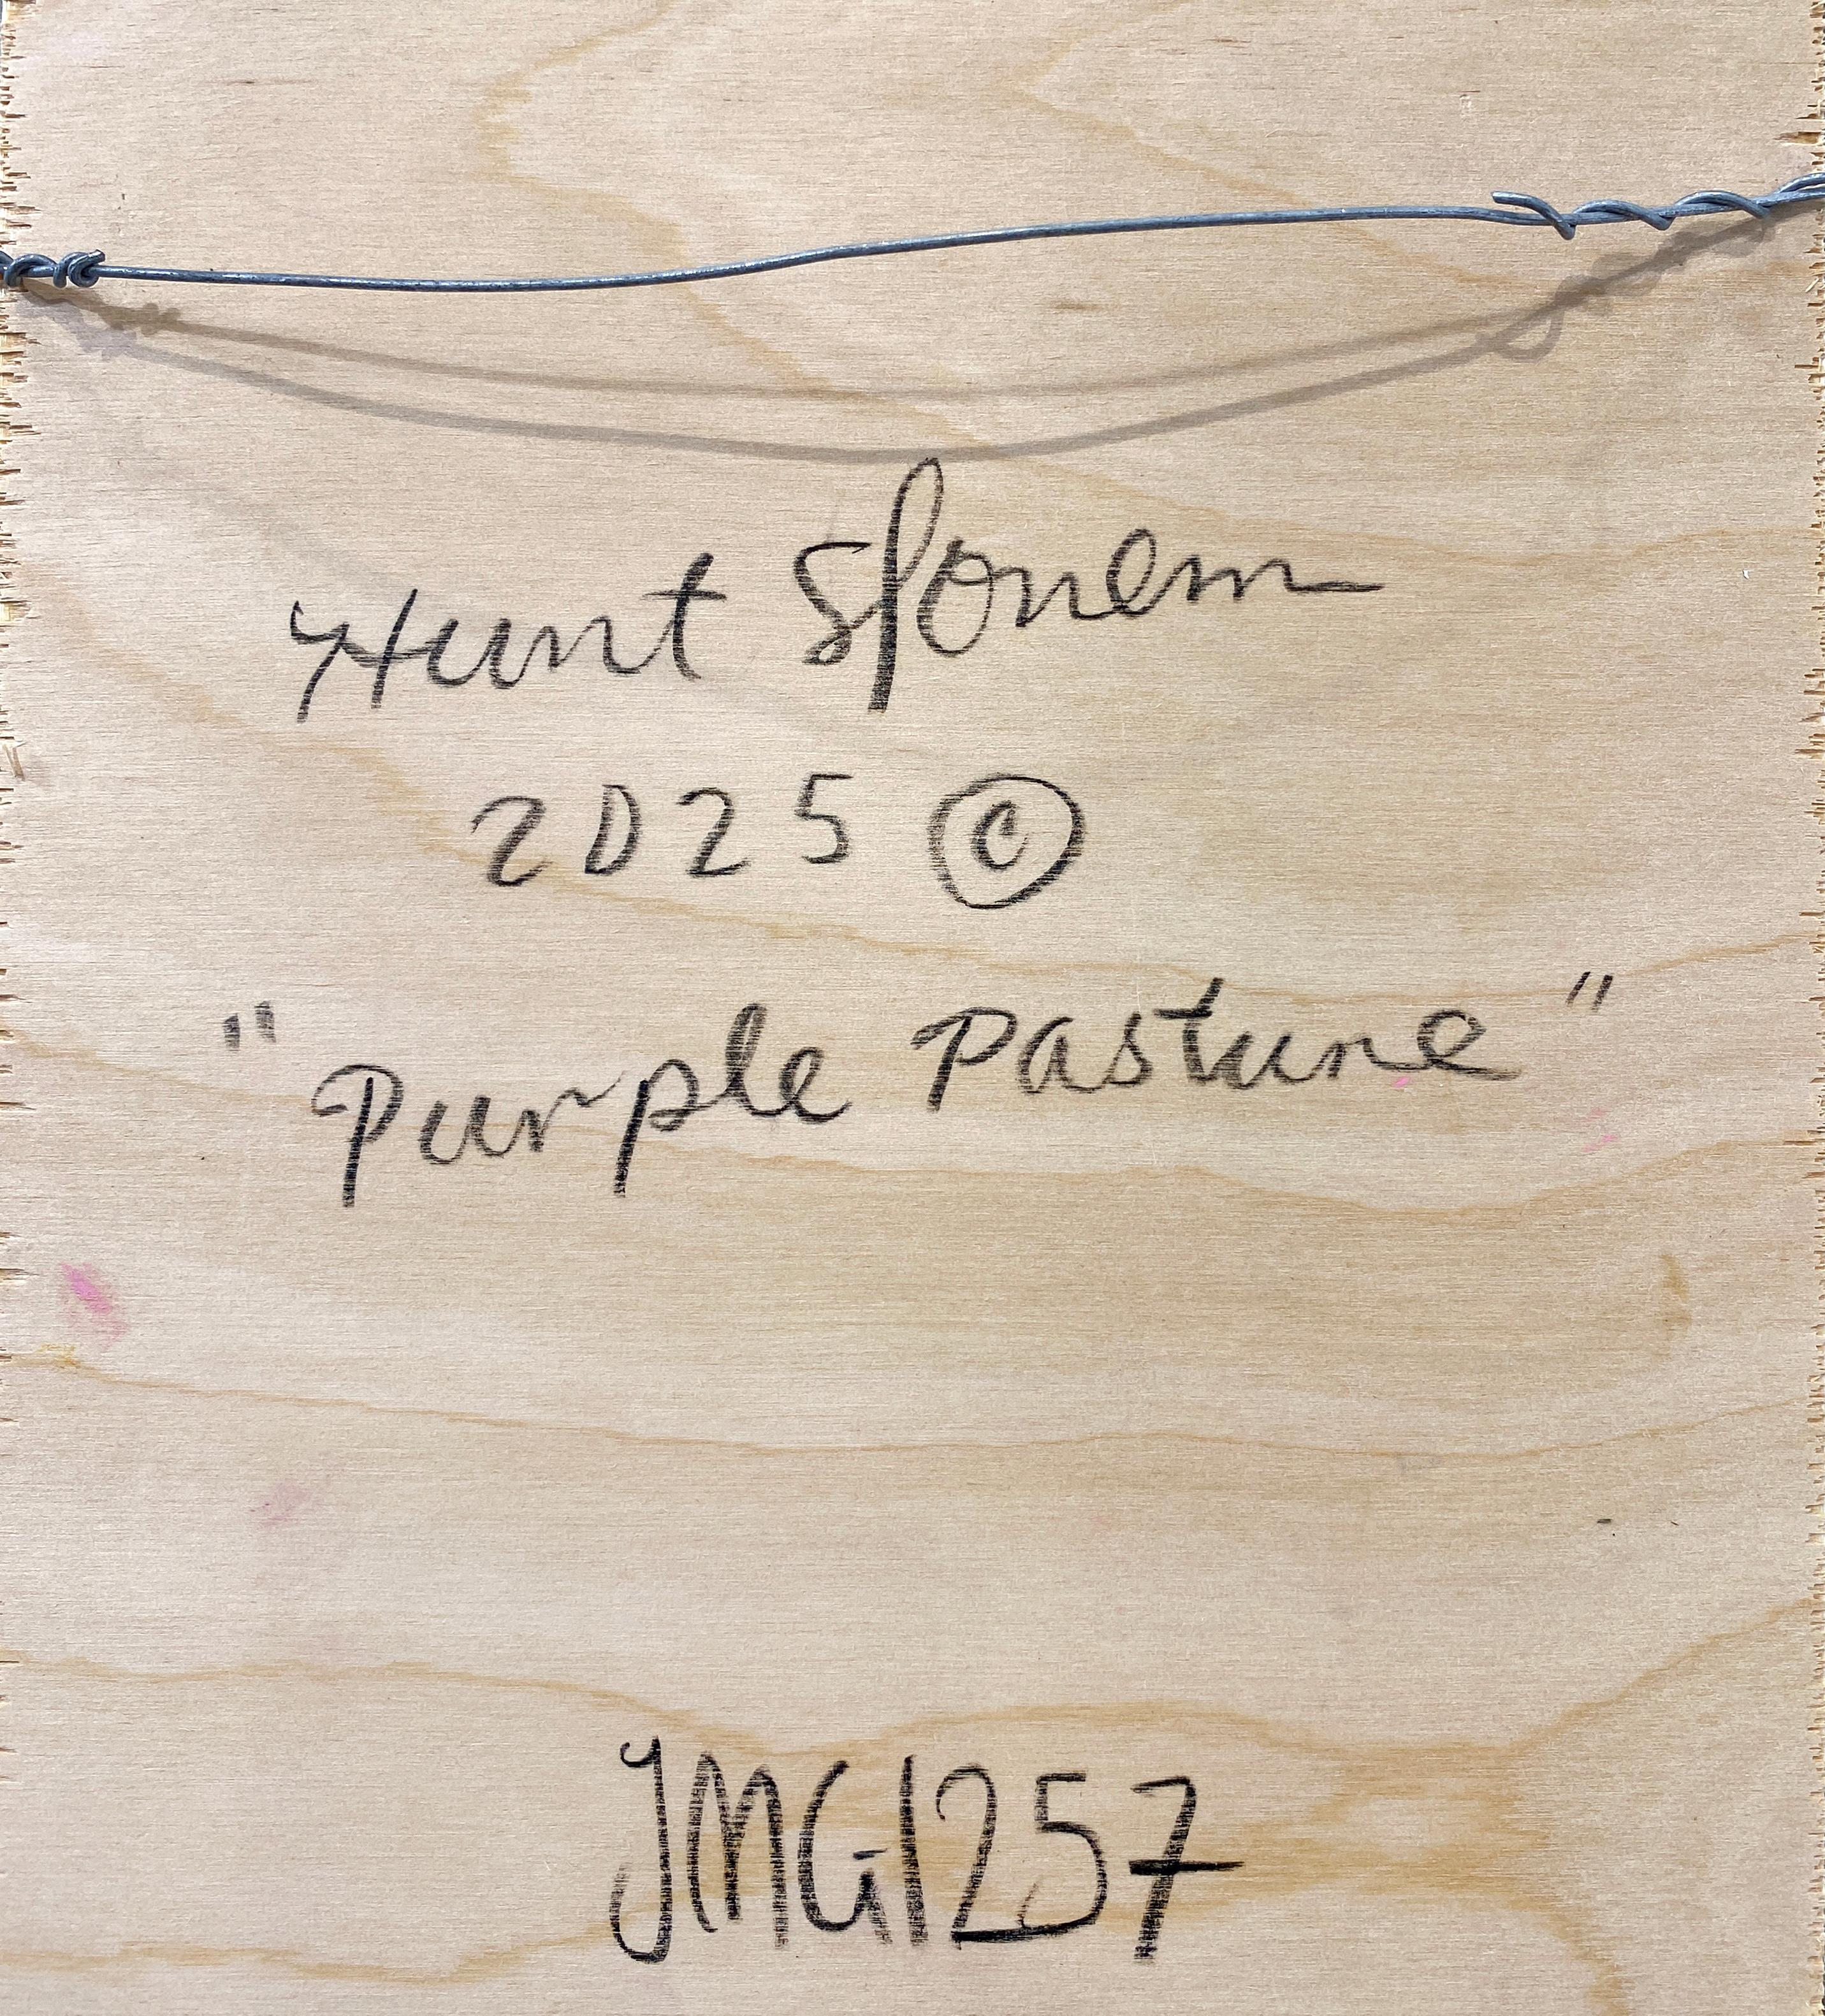 Hunt Slonem
2025 ©
"Purple Pasture"
JMG1257